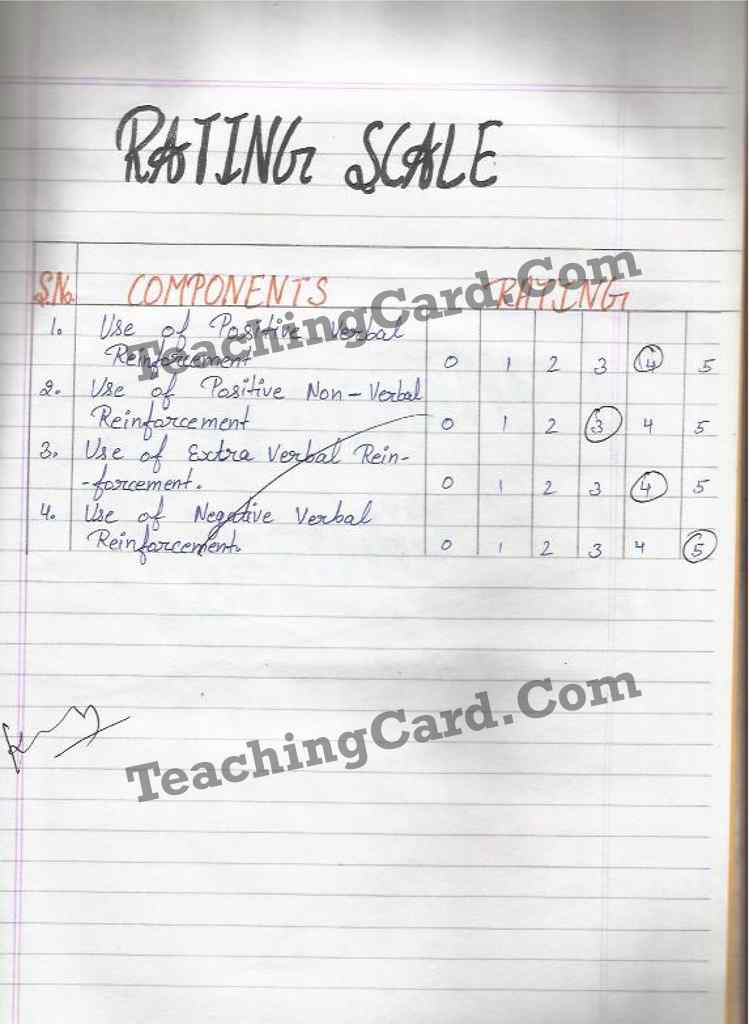 RATING SCALE
S.No. COMPONENTS RATING
1. Use of Positive Verbal
Reinforcement 0 1 2 3 4 5
2. Use of Positive Non-Verbal
Reinforcement 0 1 2 3 4 5
3. Use of Extra Verbal Rein-
-forcement. 0 1 2 3 4 5
4. Use of Negative Verbal
Reinforcement. 0 1 2 3 4 5
TeachingCard.Com
TeachingCard.Com